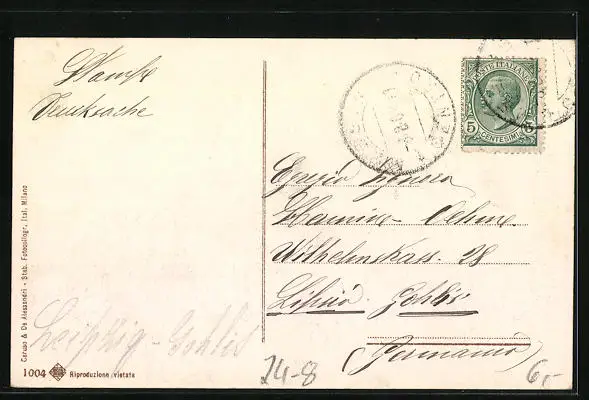 Drucksache
POSTE ITALIANE
5 5
CENTESIMI
Egregio Signora
Oehme
Wilhelmstras. 28
Lipsia. Gohlis
(Germania)
Leipzig-Gohlis
24-8
6,-
Caruso & De Alessandri - Stab. Fotocollogr. Ital. Milano
1004 Riproduzione vietata